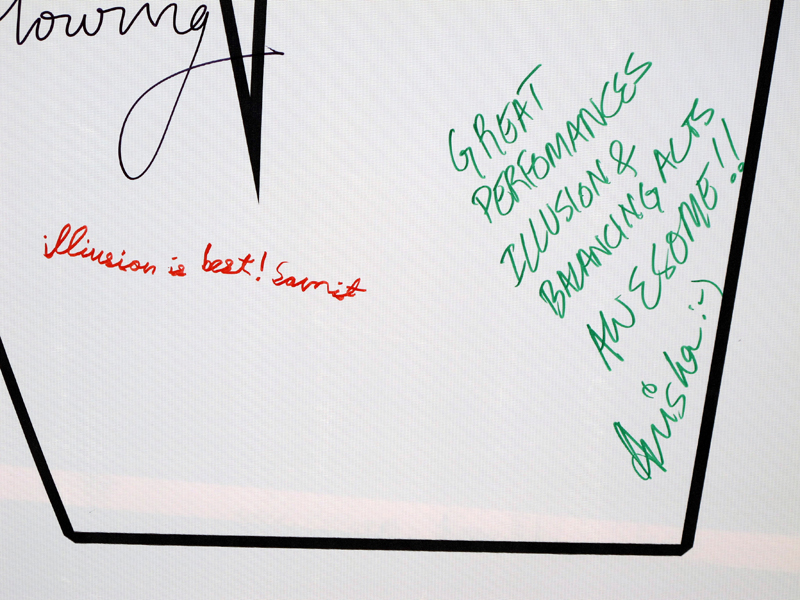 illiusion is best! Samit
GREAT
PERFOMANCES
ILLUSION &
BALANCING ACTS
AWESOME!!
Anisha :-)